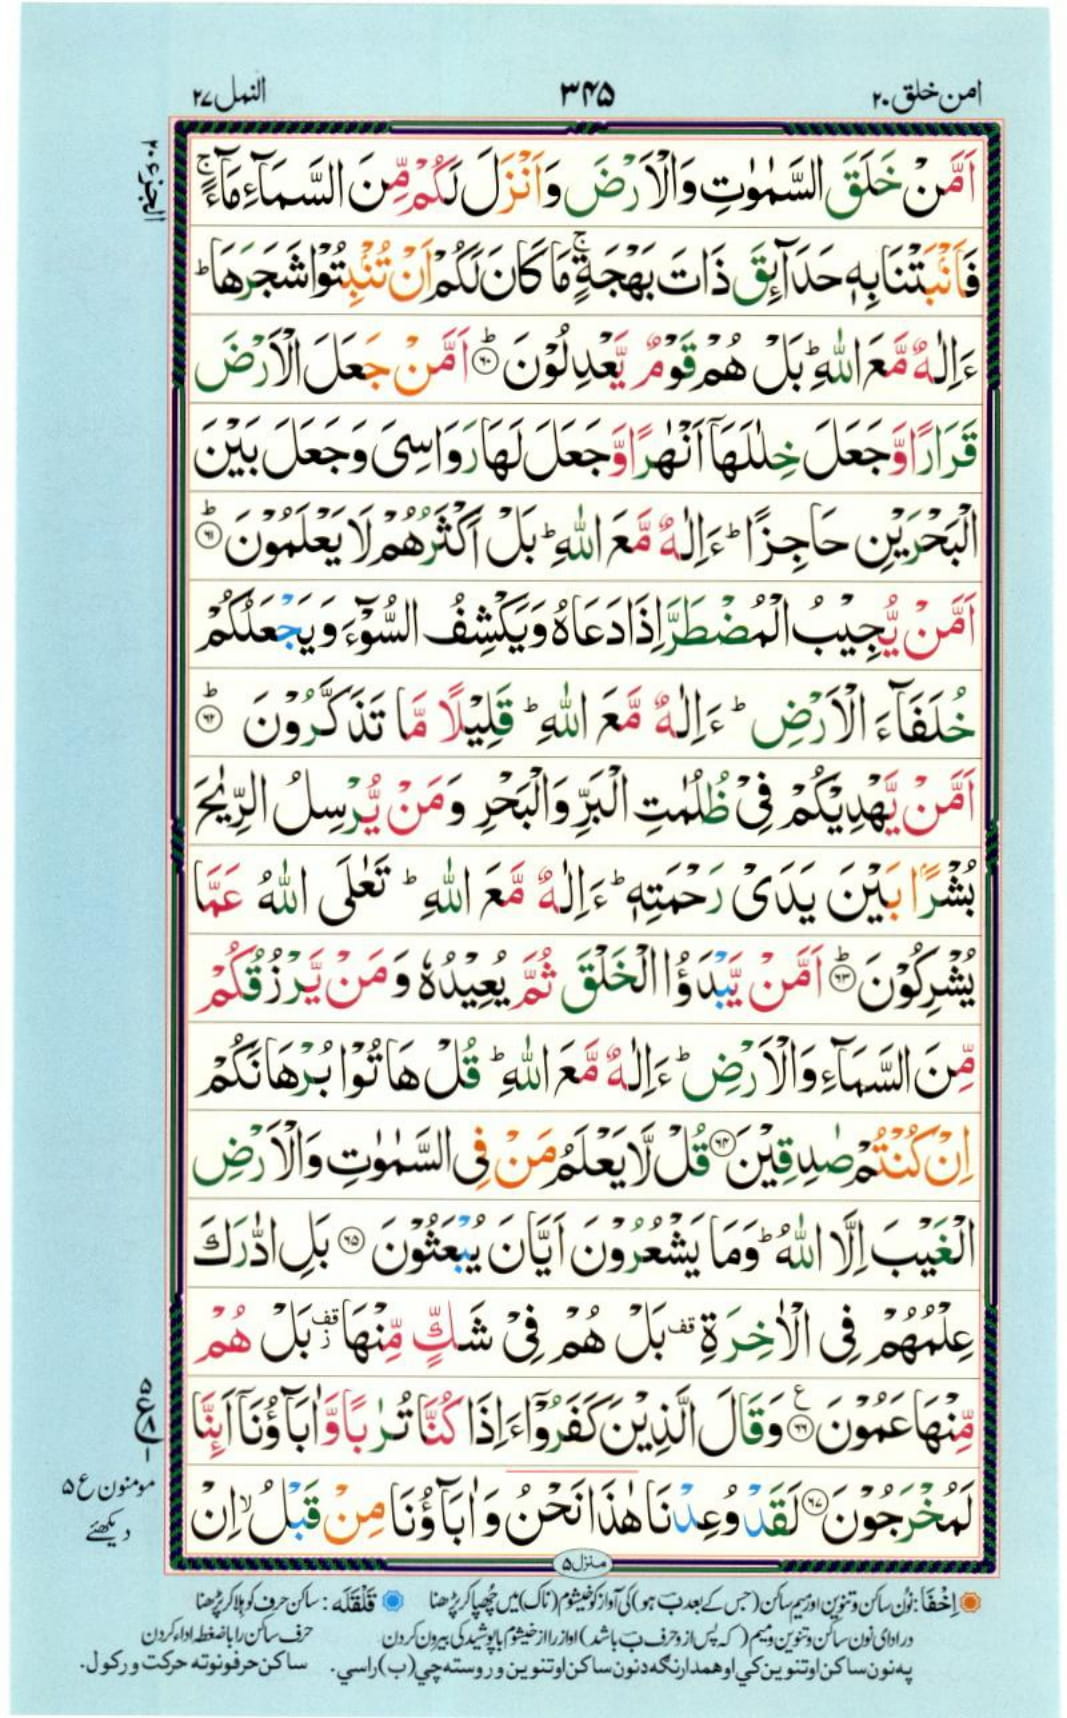 امن خلق ۲۰
۳۴۵
النمل ۲۷
الجزء ۲۰
اَمَّنْ خَلَقَ السَّمٰوٰتِ وَالْاَرْضَ وَاَنْزَلَ لَكُمْ مِّنَ السَّمَآءِ مَآءً ۚ
فَاَنْۢبَتْنَا بِهٖ حَدَآئِقَ ذَاتَ بَهْجَةٍ ۚ مَا كَانَ لَكُمْ اَنْ تُنْۢبِتُوْا شَجَرَهَا ؕ
ءَاِلٰهٌ مَّعَ اللّٰهِ ؕ بَلْ هُمْ قَوْمٌ يَّعْدِلُوْنَ ؕ‏﴿۶۰﴾ اَمَّنْ جَعَلَ الْاَرْضَ
قَرَارًا وَّجَعَلَ خِلٰلَهَاۤ اَنْهٰرًا وَّجَعَلَ لَهَا رَوَاسِىَ وَجَعَلَ بَيْنَ
الْبَحْرَيْنِ حَاجِزًا ؕ ءَاِلٰهٌ مَّعَ اللّٰهِ ؕ بَلْ اَكْثَرُهُمْ لَا يَعْلَمُوْنَ ؕ‏﴿۶۱﴾
اَمَّنْ يُّجِيْبُ الْمُضْطَرَّ اِذَا دَعَاهُ وَيَكْشِفُ السُّوْٓءَ وَيَجْعَلُكُمْ
خُلَفَآءَ الْاَرْضِ ؕ ءَاِلٰهٌ مَّعَ اللّٰهِ ؕ قَلِيْلًا مَّا تَذَكَّرُوْنَ ؕ‏﴿۶۲﴾
اَمَّنْ يَّهْدِيْكُمْ فِىْ ظُلُمٰتِ الْبَرِّ وَالْبَحْرِ وَمَنْ يُّرْسِلُ الرِّيٰحَ
بُشْرًۢا بَيْنَ يَدَىْ رَحْمَتِهٖ ؕ ءَاِلٰهٌ مَّعَ اللّٰهِ ؕ تَعٰلَى اللّٰهُ عَمَّا
يُشْرِكُوْنَ ؕ‏﴿۶۳﴾ اَمَّنْ يَّبْدَؤُا الْخَلْقَ ثُمَّ يُعِيْدُهٗ وَمَنْ يَّرْزُقُكُمْ
مِّنَ السَّمَآءِ وَالْاَرْضِ ؕ ءَاِلٰهٌ مَّعَ اللّٰهِ ؕ قُلْ هَاتُوْا بُرْهَانَكُمْ
اِنْ كُنْتُمْ صٰدِقِيْنَ ﴿۶۴﴾ قُلْ لَّا يَعْلَمُ مَنْ فِى السَّمٰوٰتِ وَالْاَرْضِ
الْغَيْبَ اِلَّا اللّٰهُ ؕ وَمَا يَشْعُرُوْنَ اَيَّانَ يُبْعَثُوْنَ ﴿۶۵﴾ بَلِ ادّٰرَكَ
عِلْمُهُمْ فِى الْاٰخِرَةِ قف بَلْ هُمْ فِىْ شَكٍّ مِّنْهَا قف ز بَلْ هُمْ
مِّنْهَا عَمُوْنَ ﴿۶۶﴾ ع وَقَالَ الَّذِيْنَ كَفَرُوْٓا ءَاِذَا كُنَّا تُرٰبًا وَّاٰبَآؤُنَاۤ اَئِنَّا
لَمُخْرَجُوْنَ ﴿۶۷﴾ لَقَدْ وُعِدْنَا هٰذَا نَحْنُ وَاٰبَآؤُنَا مِنْ قَبْلُ ۙ اِنْ
مومنون ع ۵
دیکھئے
منزل ۵
اِخْفَا: نون ساکن و تنوین اور میم ساکن (جس کے بعد ب ہو) کی آواز کو خیشوم (ناک) میں چھپا کر پڑھنا قَلْقَلَه: ساکن حرف کو ہلا کر پڑھنا
در ادای نون ساکن و تنوین و میم (که پس از و حرف ب باشد) آواز را از خیشوم با پوشیدگی بیرون کردن حرف ساکن را با ضغطه ادا کردن
په نون ساکن او تنوین کي او همدارنګه د نون ساکن او تنوین وروسته چي (ب) راسي. ساکن حرفونو ته حرکت ورکول.